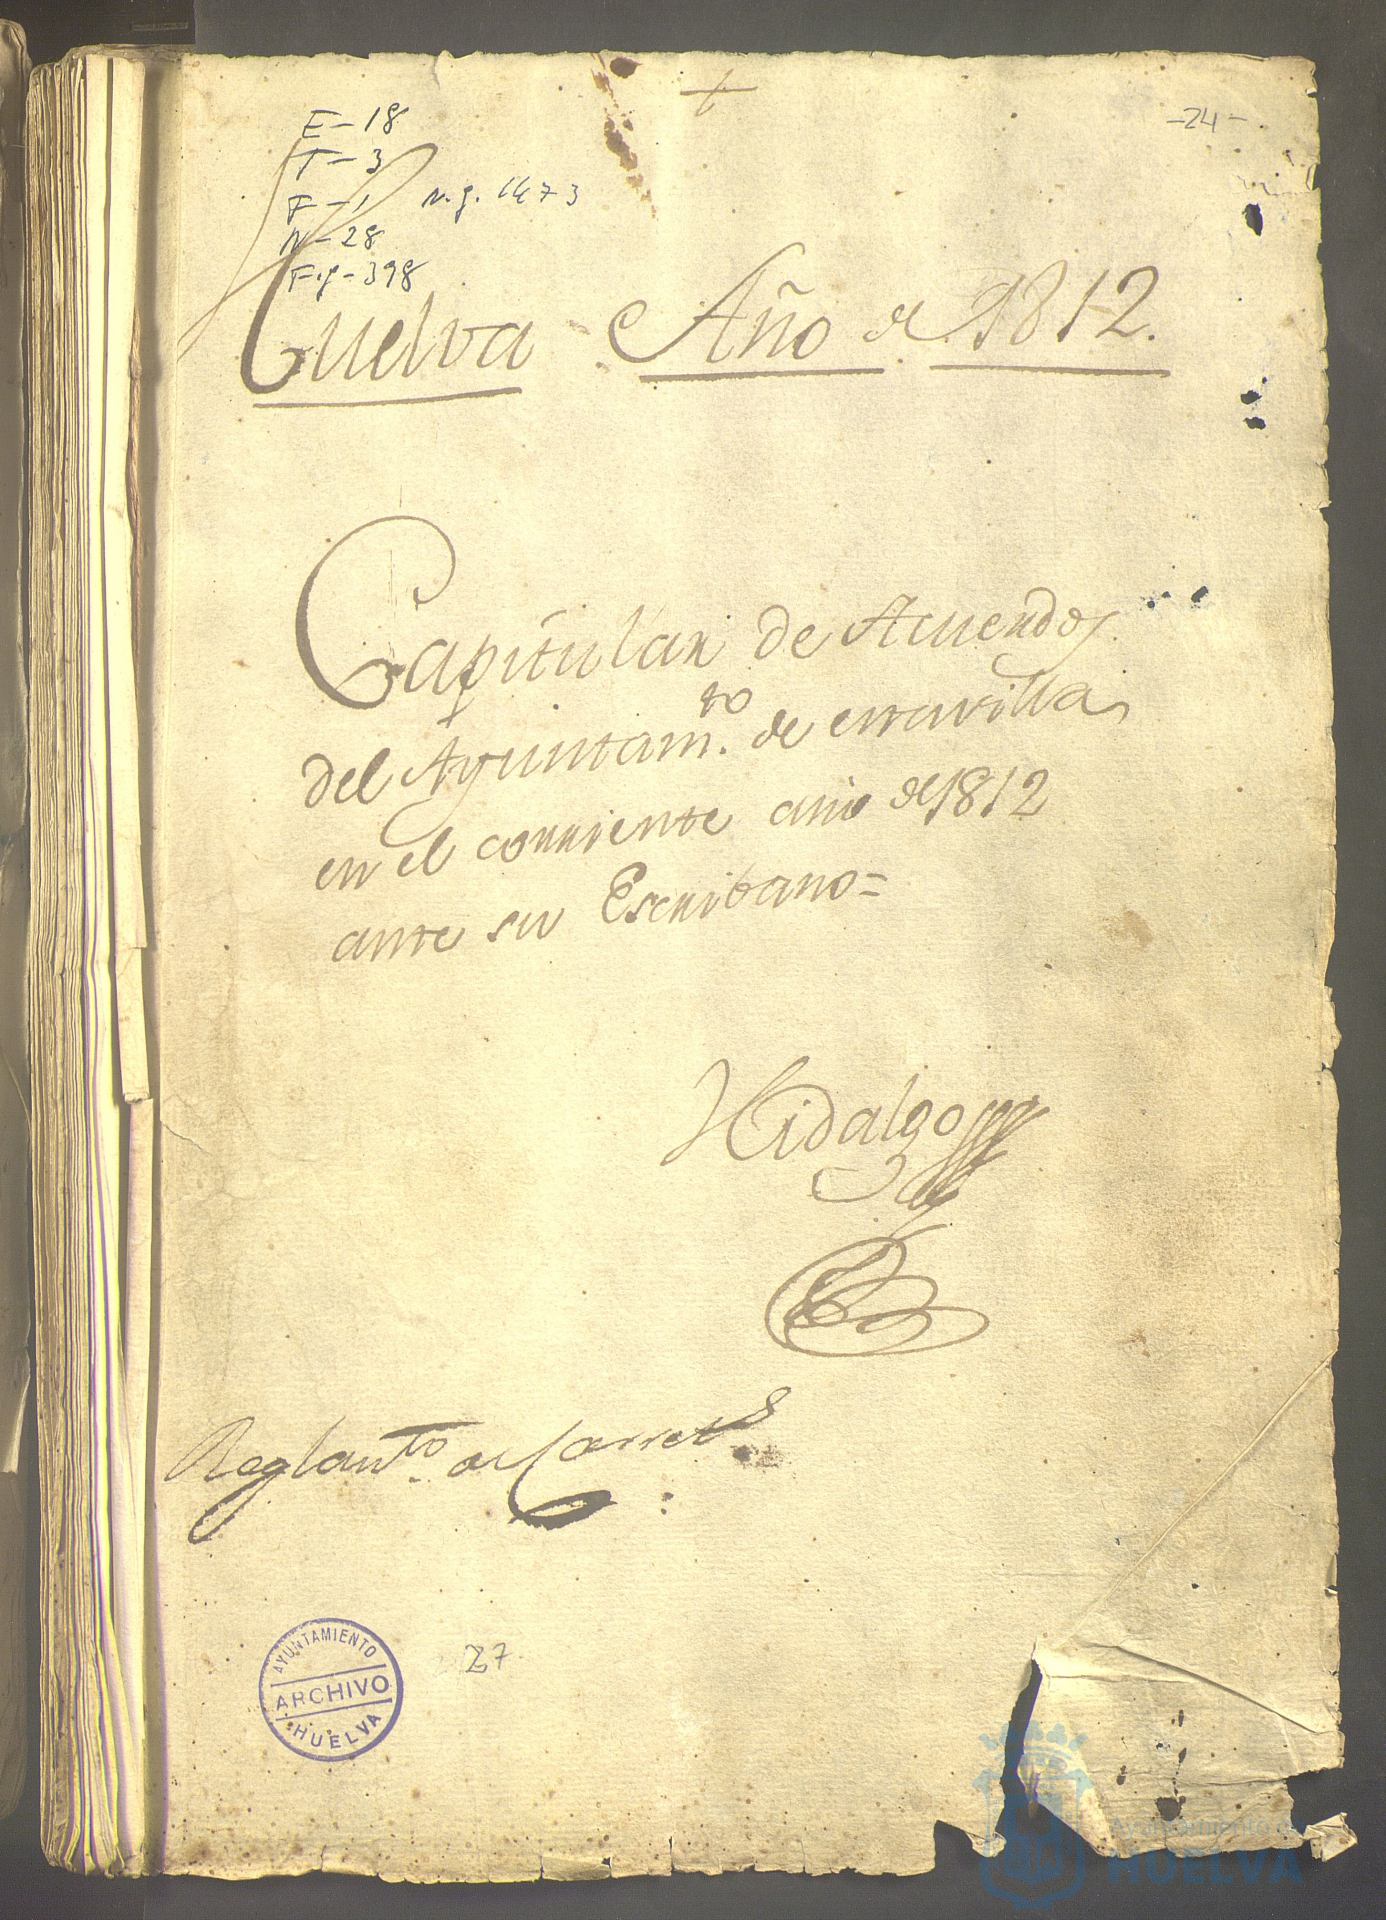 +
-24-
E-18
T-3
F-1 N.g. 1473
N-28
F.g-398
Huelva Año de 1812.
Capitular de Acuerdos
del Ayuntam.to de esta villa
en el corriente año de 1812
ante su Escribano=
Hidalgo
Reglam.to de
27
AYUNTAMIENTO
ARCHIVO
HUELVA
Ayuntamiento de
HUELVA